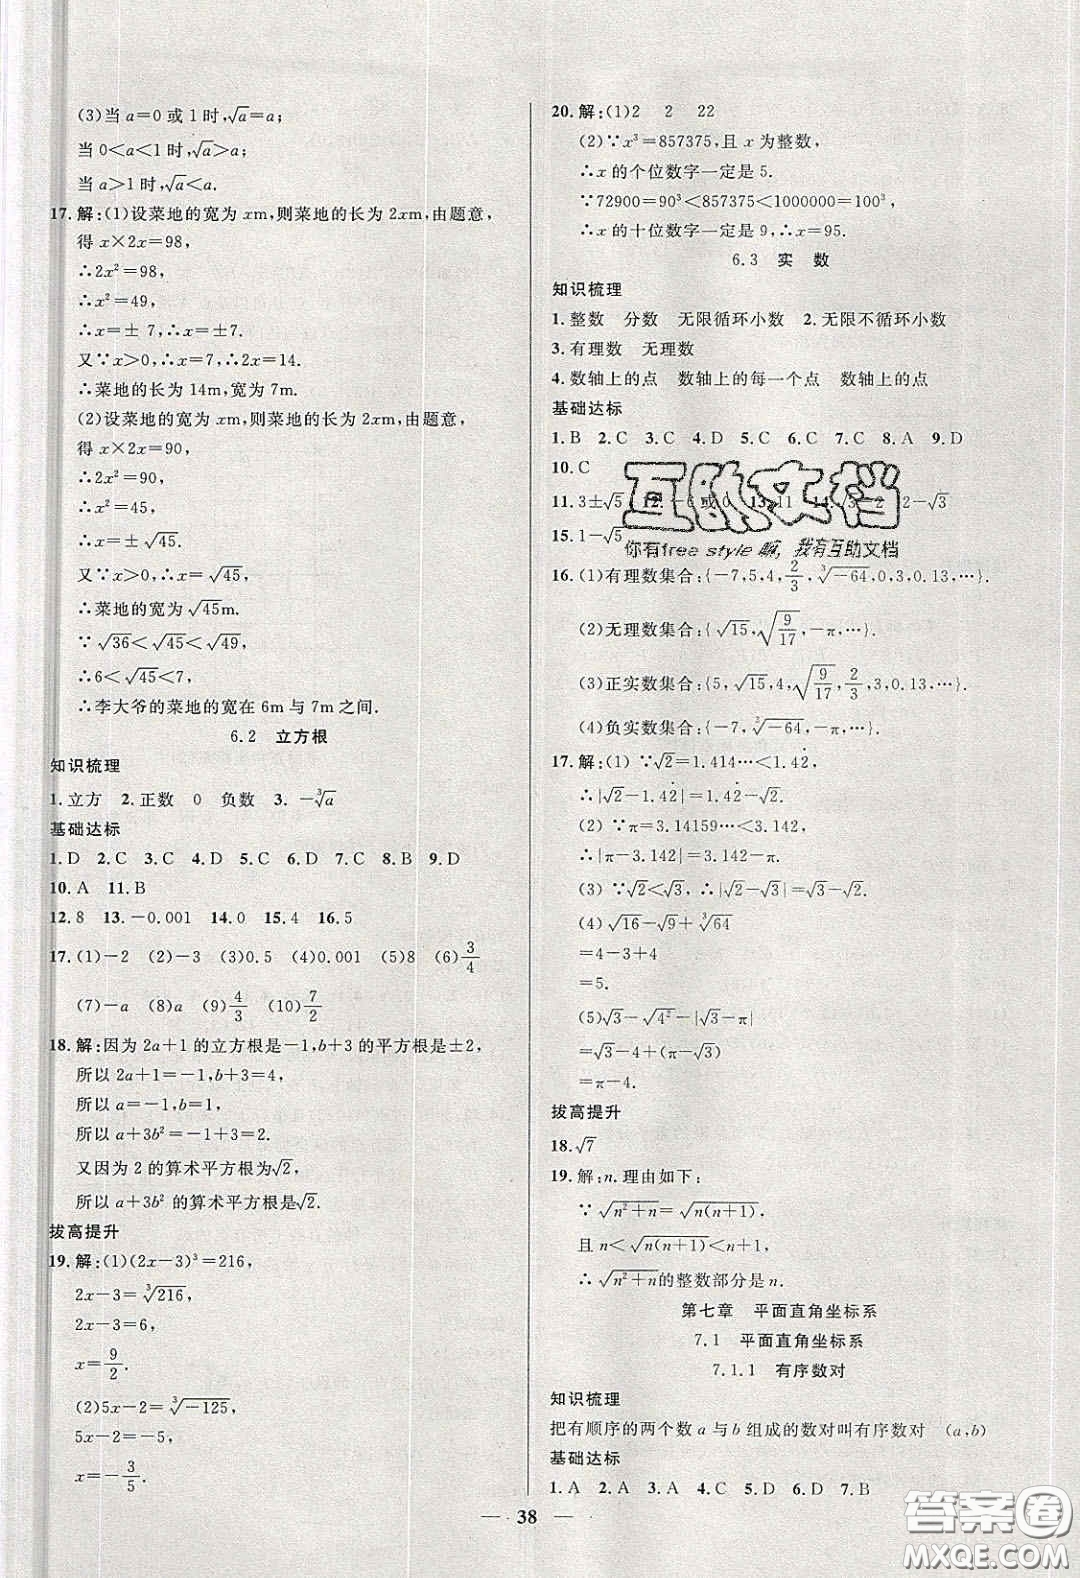 (3)当 a=0 或 1 时,√a=a;
当 0<a<1 时,√a>a;
当 a>1 时,√a<a.
17.解:(1)设菜地的宽为 xm,则菜地的长为 2xm,由题意,
得 x×2x=98,
∴2x²=98,
∴x²=49,
∴x=± 7,∴x=±7.
又∵x>0,∴x=7,∴2x=14.
∴菜地的长为 14m,宽为 7m.
(2)设菜地的宽为 xm,则菜地的长为 2xm,由题意,
得 x×2x=90,
∴2x²=90,
∴x²=45,
∴x=±√45.
又∵x>0,∴x=√45,
∴菜地的宽为√45m.
∵√36<√45<√49,
∴6<√45<7,
∴李大爷的菜地的宽在 6m 与 7m 之间.
6.2 立方根
知识梳理
1.立方 2.正数 0 负数 3.-∛a
基础达标
1.D 2.C 3.C 4.D 5.C 6.D 7.C 8.B 9.D
10.A 11.B
12.8 13.-0.001 14.0 15.4 16.5
17.(1)-2 (2)-3 (3)0.5 (4)0.001 (5)8 (6)3/4
(7)-a (8)a (9)4/3 (10)7/2
18.解:因为 2a+1 的立方根是-1,b+3 的平方根是±2,
所以 2a+1=-1,b+3=4,
所以 a=-1,b=1,
所以 a+3b²=-1+3=2.
又因为 2 的算术平方根为√2,
所以 a+3b² 的算术平方根是√2.
拔高提升
19.解:(1)(2x-3)³=216,
2x-3=∛216,
2x-3=6,
x=9/2.
(2)5x-2=∛-125,
5x-2=-5,
x=-3/5.
20.解:(1)2 2 22
(2)∵x³=857375,且 x 为整数,
∴x 的个位数字一定是 5.
∵72900=90³<857375<1000000=100³,
∴x 的十位数字一定是 9,∴x=95.
6.3 实 数
知识梳理
1.整数 分数 无限循环小数 2.无限不循环小数
3.有理数 无理数
4.数轴上的点 数轴上的每一个点 数轴上的点
基础达标
1.B 2.C 3.C 4.D 5.C 6.C 7.C 8.A 9.D
10.C
11.3±√5 12.-6或0 13.11 14.√3-2 2-√3
15.1-√5
互助文档
你有free style嘛, 我有互助文档
16.(1)有理数集合:{-7,5,4,2/3,∛-64,0,3,0.13,…}.
(2)无理数集合:{√15,√(9/17),-π,…}.
(3)正实数集合:{5,√15,4,√(9/17),2/3,3,0.13,…}.
(4)负实数集合:{-7,∛-64,-π,…}.
17.解:(1)∵√2=1.414…<1.42̇,
∴|√2-1.42̇|=1.42̇-√2.
(2)∵π=3.14159…<3.142,
∴|π-3.142|=3.142-π.
(3)∵√2<√3,∴|√2-√3|=√3-√2.
(4)√16-√9+∛64
=4-3+4
=5.
(5)√3-√4²-|√3-π|
=√3-4-(π-√3)
=π-4.
拔高提升
18.√7
19.解:n.理由如下:
∵√(n²+n)=√(n(n+1)),
且 n<√(n(n+1))<n+1,
∴√(n²+n)的整数部分是 n.
第七章 平面直角坐标系
7.1 平面直角坐标系
7.1.1 有序数对
知识梳理
把有顺序的两个数 a 与 b 组成的数对叫有序数对 (a,b)
基础达标
1.A 2.A 3.A 4.C 5.D 6.D 7.B
38
答案圈
MXQE.COM